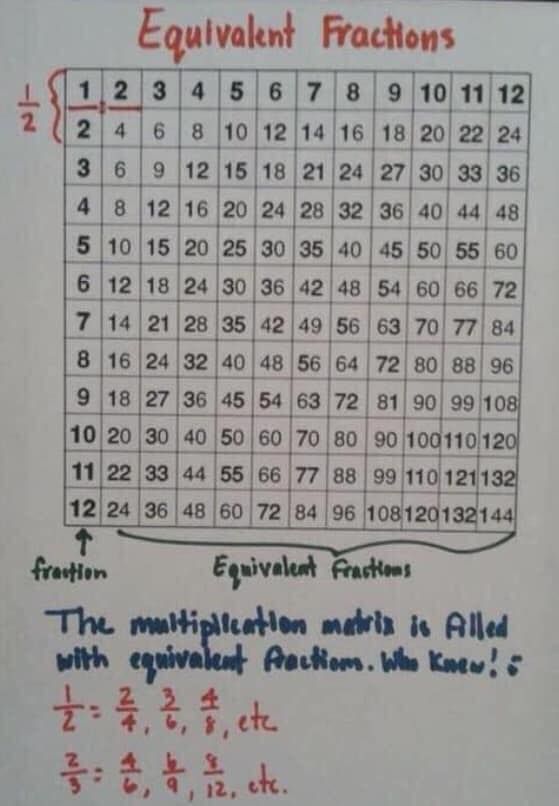 Equivalent Fractions
1/2
1 2 3 4 5 6 7 8 9 10 11 12
2 4 6 8 10 12 14 16 18 20 22 24
3 6 9 12 15 18 21 24 27 30 33 36
4 8 12 16 20 24 28 32 36 40 44 48
5 10 15 20 25 30 35 40 45 50 55 60
6 12 18 24 30 36 42 48 54 60 66 72
7 14 21 28 35 42 49 56 63 70 77 84
8 16 24 32 40 48 56 64 72 80 88 96
9 18 27 36 45 54 63 72 81 90 99 108
10 20 30 40 50 60 70 80 90 100 110 120
11 22 33 44 55 66 77 88 99 110 121 132
12 24 36 48 60 72 84 96 108 120 132 144
fraction Equivalent fractions
The multiplication matrix is filled
with equivalent fractions. Who Knew!
1/2 = 2/4, 3/6, 4/8, etc
2/3 = 4/6, 6/9, 8/12, etc.